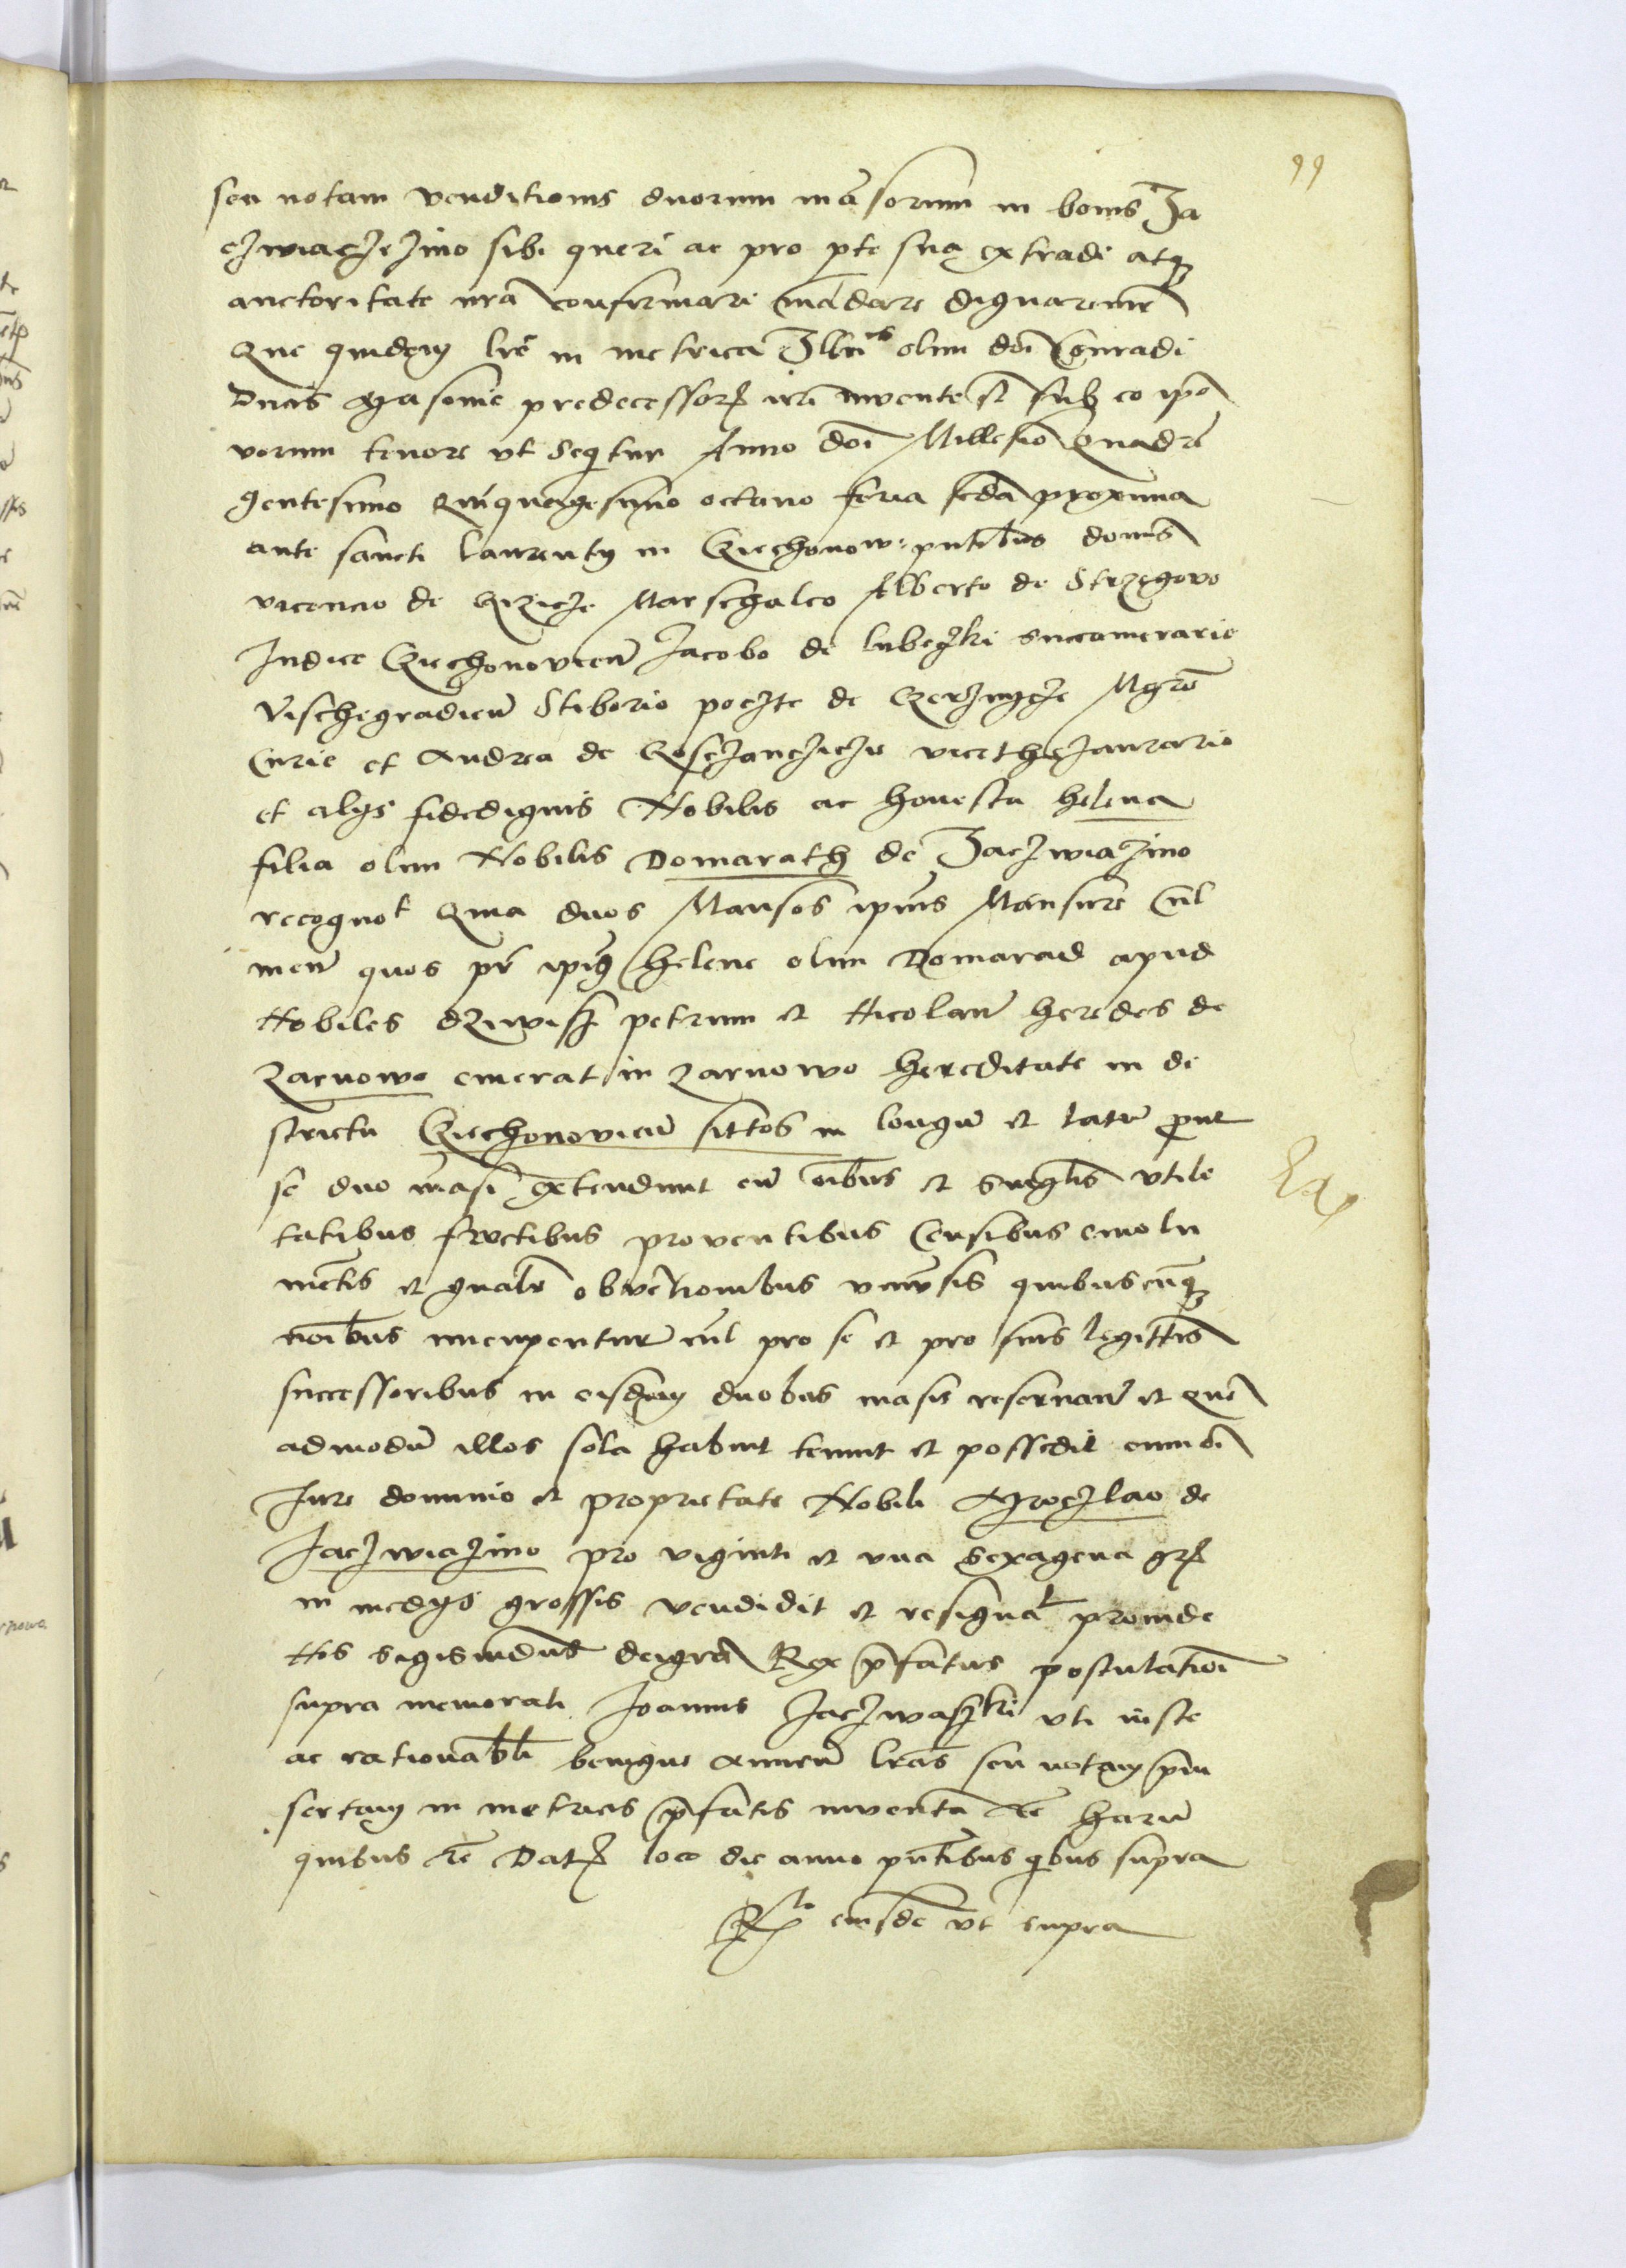 99
seu notam venditionis duorum mãsorum in bonis Ja
czwiaczezino sibi queri ac pro pte sua extradi atqz
auctoritate nrã confirmari mãdare dignaremr̃
Que quidem lrẽ in metrica Illũis olim dñi Conradi
Ducis Masovie predecessorꝝ nrĩ invente st̃ sub eo ipõ
verum tenore vt Seqitur Anno doĩ Millesiõ Quadrĩ
gentesimo Quĩquagesimo octavo feria scda proxima
ante sancti laurenty in Cziechonow: pntĩbus domĩs
vicencio de Gizicze Marschalco Alberto de Strzegovo
Judice Cziechonovieñ Jacobo de lubeczki succamerario
Vischegradieñ Stiborio poczte de Czerznycze Mgrõ
Curie et Andrea de Gosczanczicze vicethezaurario
et alys fidedignis Nobilis ac honesta helena
filia olim Nobilis Domarath de Jaczwiazino
recognot Quia duos Mansos ipius Mansure Cul
meñ quos pr̃ ipiꝰ helene olim Domarad apud
Nobiles dziwisz petrum et Nicolaũ heredes de
Zarnowo emerat in Zarnowo hereditate in de
strictu Cziechonovieñ sittos in longũ et latũ prout
se duo mãsi extendunt cũ oĩbus et Singlis vtili
tatibus fructibus proventibus Censibus emolu
mẽtis et gnalr̃ obvẽtionibus vniv̾sis quibuscũqz
noĩbus nuncupentur nil pro se et pro suis legittĩs
successoribus in eisdem duobus masis reservañ et que
admodũ illos sola habuit tenuit et possedit cum õi
Jure dominio et proprietate Nobili Mroczlao de
Jaczwiazino pro viginti et vna Sexagena grꝝ
in medys grossis vendidit et resignaꝰt proinde
Nos Sigismũdus deigrã Rex prefatus postulationi
supra memorati Joannis Jaczwaszki vti iuste
ac rationabli benigne annueñ lrãs seu notam prein
sertam in metricis prefatis inventã etc̃ harũ
quibus etc̃ Datꝝ loco die anno pntĩbus qibus supra
Rlo eiusdẽ vt supra